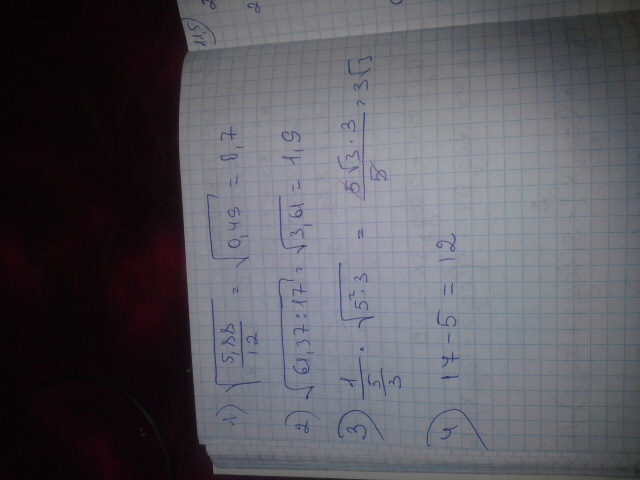 115)
1) √(5,88/12) = √0,49 = 0,7
2) √(61,37:17) = √3,61 = 1,9
3) 1/(5/3) · √(5²·3) = (5√3·3)/5 = 3√3
4) 17-5 = 12